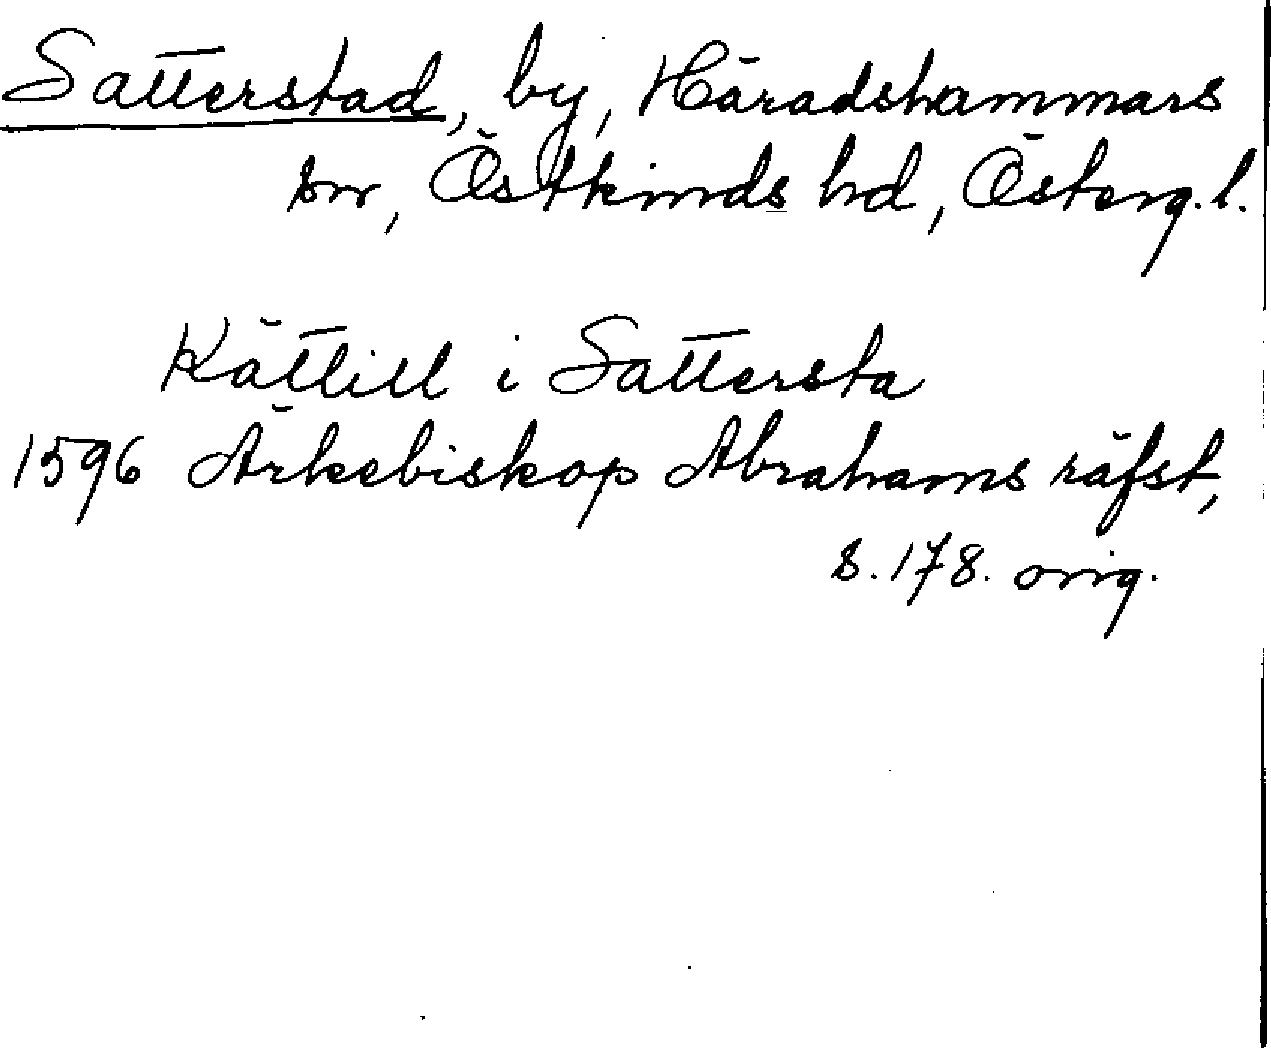 Satterstad, by, Häradshammars
sn, Östkinds hd, Österg. l.
Kättill i Sattersta
1596 Ärkebiskop Abrahams räfst,
s. 178. orig.